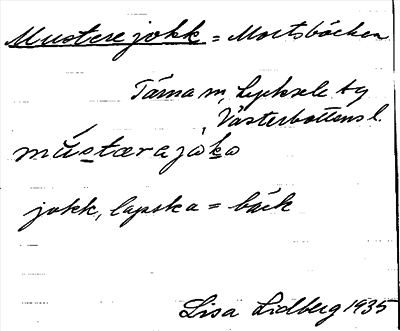 Mustere jokk = Mortsbäcken
Tärna sn, Lycksele tg
Västerbottens l.
mústæra jo̱ka
jokk, lapska = bäck
Lisa Lidberg 1935